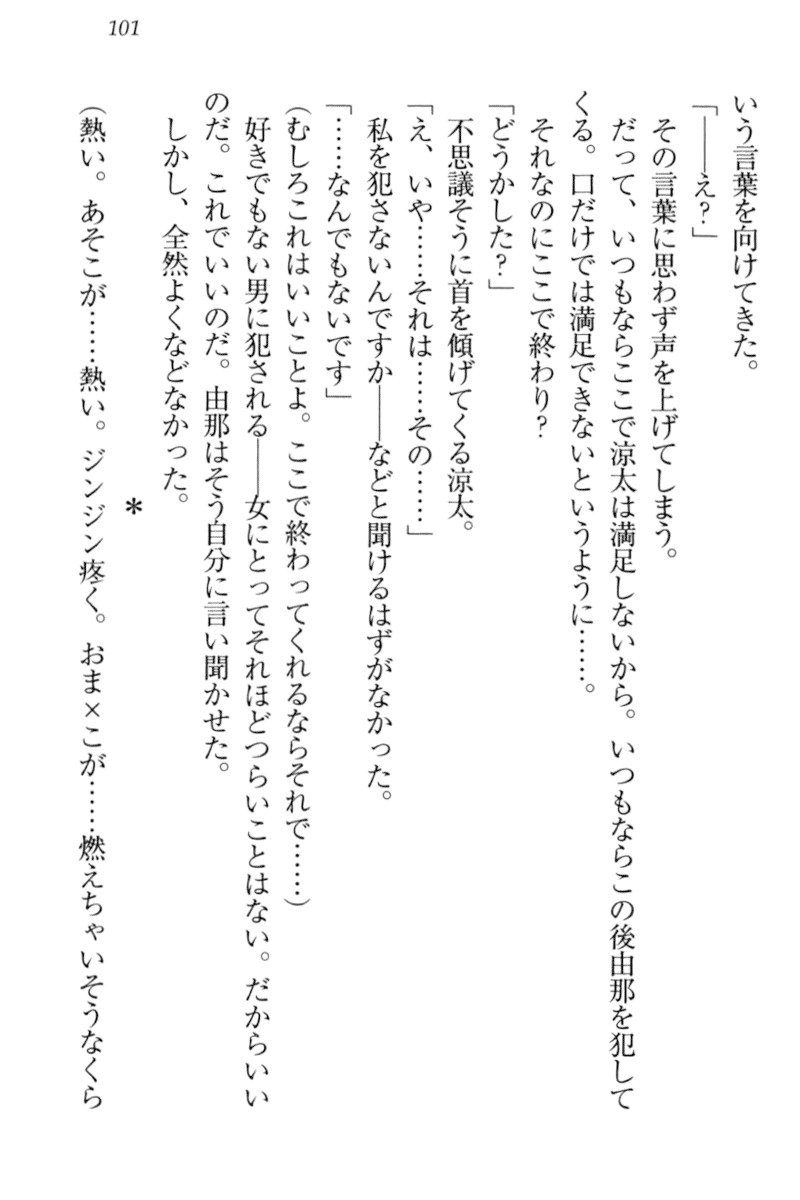 101
いう言葉を向けてきた。
「――え?」
その言葉に思わず声を上げてしまう。
だって、いつもならここで涼太は満足しないから。いつもならこの後由那を犯して
くる。口だけでは満足できないというように……。
それなのにここで終わり?
「どうかした?」
不思議そうに首を傾げてくる涼太。
「え、いや……それは……その……」
私を犯さないんですか――などと聞けるはずがなかった。
「……なんでもないです」
(むしろこれはいいことよ。ここで終わってくれるならそれで……)
好きでもない男に犯される――女にとってそれほどつらいことはない。だからいい
のだ。これでいいのだ。由那はそう自分に言い聞かせた。
しかし、全然よくなどなかった。
*
(熱い。あそこが……熱い。ジンジン疼く。おま×こが……燃えちゃいそうなくら